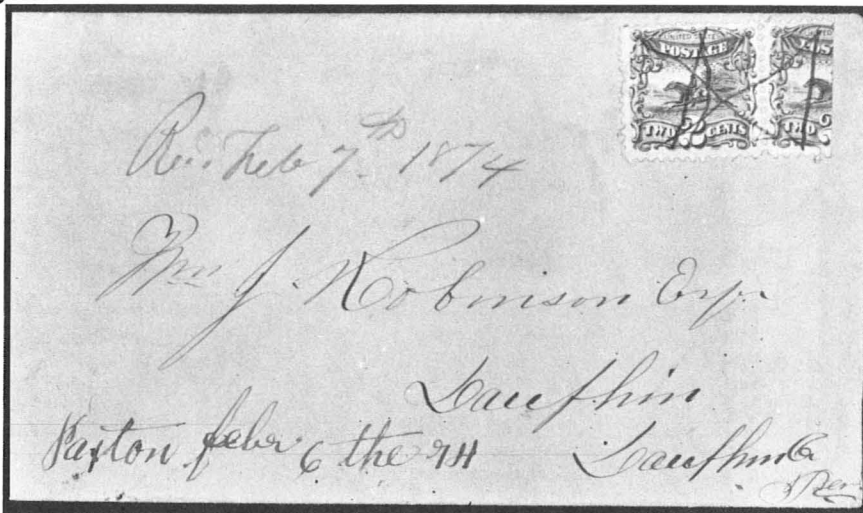 UNITED STATES
POSTAGE POS
TWO 2 CENTS TWO 2
Rec. Feb 7th 1874
Wm J. Robinson Esq.
Daufhin
Paxton feber 6 the 74
Daufhin Co